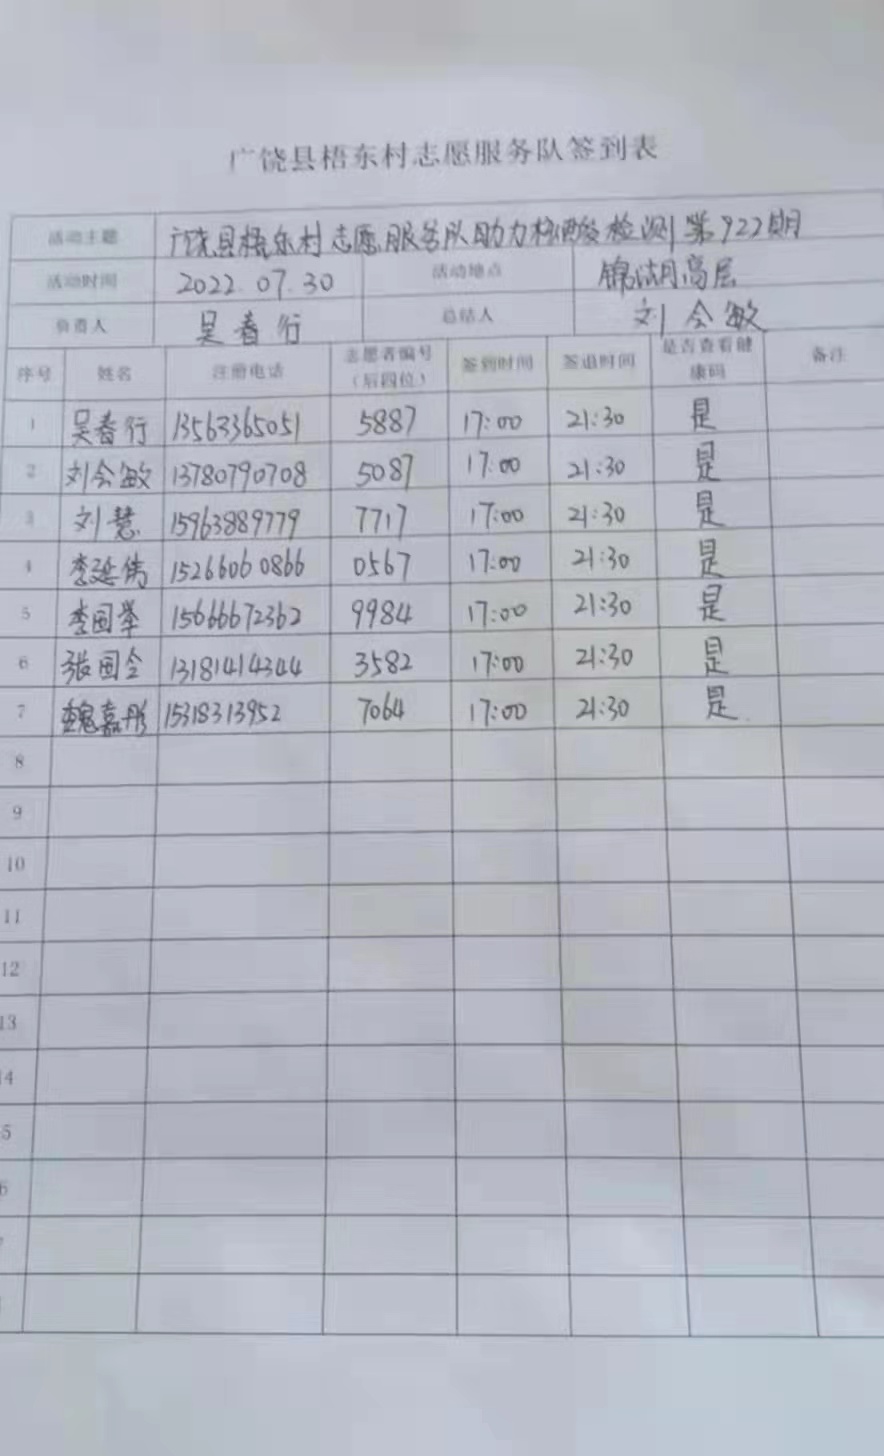 广饶县梧东村志愿服务队签到表
活动主题 广饶县梧东村志愿服务队助力核酸检测第922期
活动时间 2022.07.30 活动地点 锦湖高层
负责人 吴春行 总结人 刘会敏
序号 姓名 注册电话 志愿者编号（后四位） 签到时间 签退时间 是否查看健康码 备注
1 吴春行 13563365051 5887 17:00 21:30 是
2 刘会敏 13780790708 5087 17:00 21:30 是
3 刘慧 15963889779 7717 17:00 21:30 是
4 李延伟 15266060866 0567 17:00 21:30 是
5 李国举 15666672362 9984 17:00 21:30 是
6 张国全 13181414344 3582 17:00 21:30 是
7 魏嘉彤 15318313952 7064 17:00 21:30 是
8
9
10
11
12
13
14
5
6
7